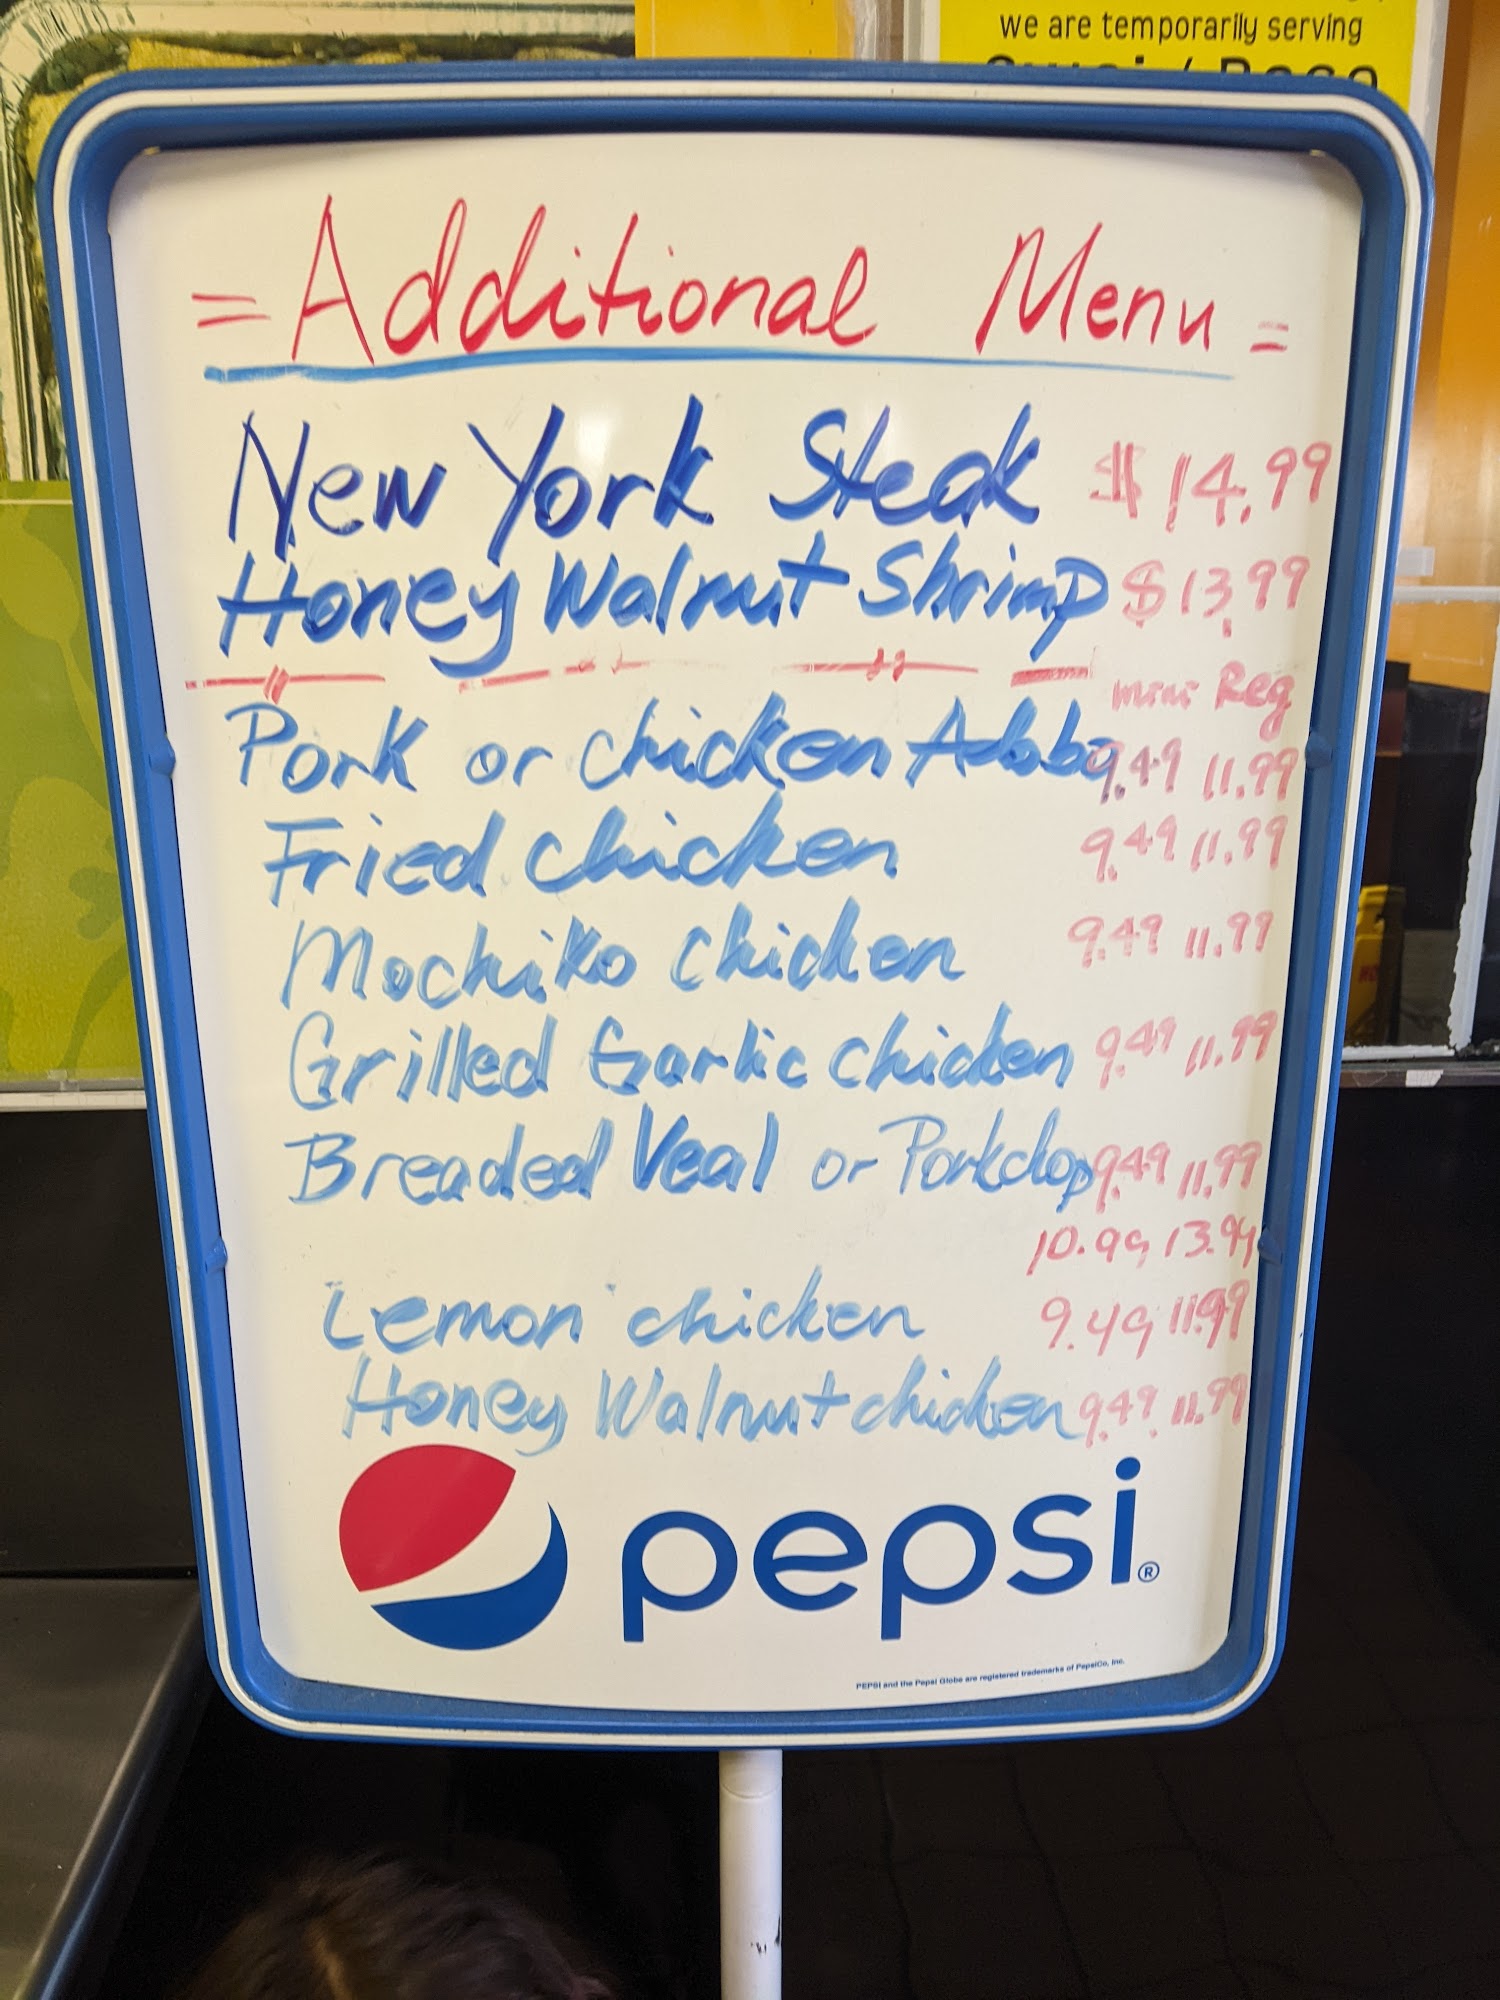 we are temporarily serving
= Additional Menu =
New York Steak $14.99
Honey Walnut Shrimp $13.99
mini Reg
Pork or chicken Adobo 9.49 11.99
Fried chicken 9.49 11.99
Mochiko chicken 9.49 11.99
Grilled Garlic chicken 9.49 11.99
Breaded Veal or Porkchop 9.49 11.99
10.99 13.99
Lemon chicken 9.49 11.99
Honey Walnut chicken 9.49 11.99
pepsi®
PEPSI and the Pepsi Globe are registered trademarks of PepsiCo, Inc.